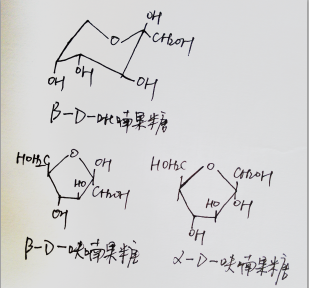 OH
O
CH2OH
OH
OH
OH
β-D-吡喃果糖
HOH2C O OH
HO
CH2OH
OH
β-D-呋喃果糖
HOH2C O CH2OH
HO OH
OH
α-D-呋喃果糖